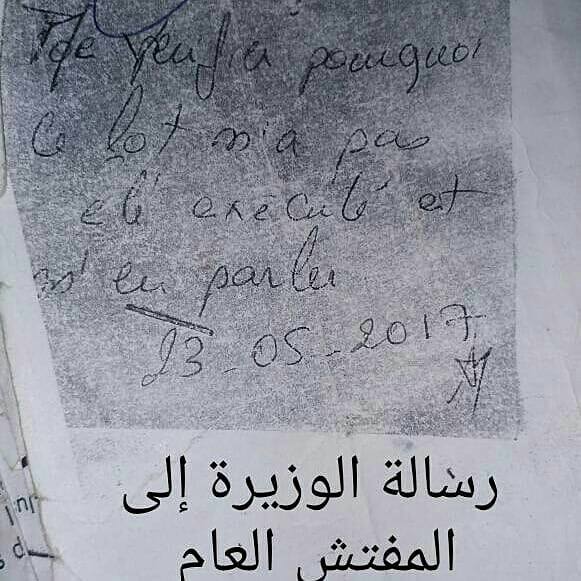 vérifier pourquoi
ce lot n'a pas
été exécuté et
m'en parler
23-05-2017
رسالة الوزيرة إلى
المفتش العام